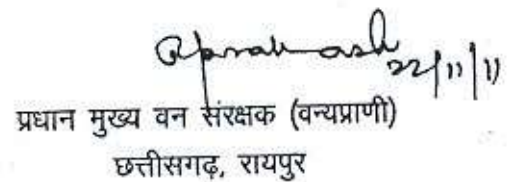 22/11/11
प्रधान मुख्य वन संरक्षक (वन्यप्राणी)
छत्तीसगढ़, रायपुर